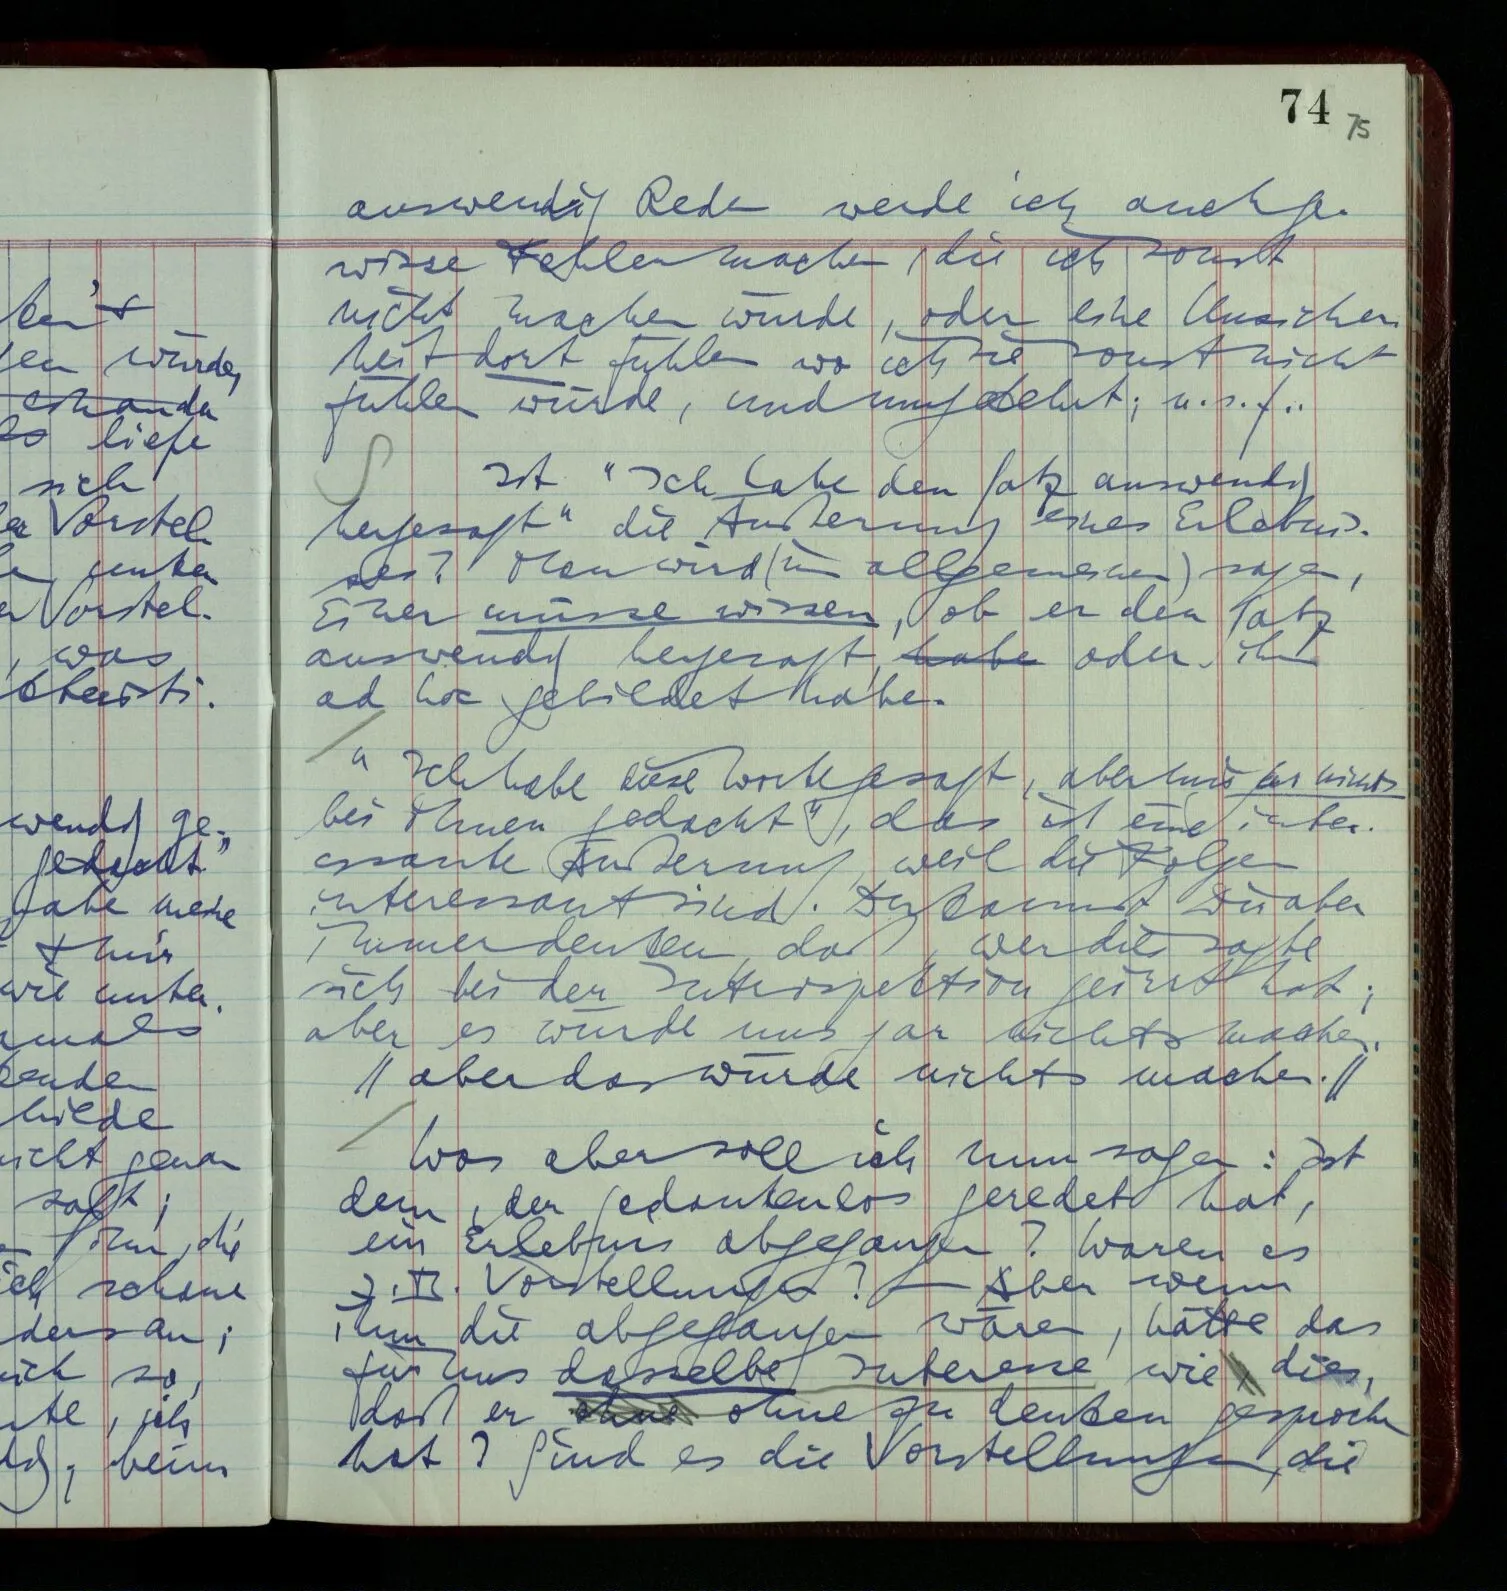 74
75
auswendig Reden werde ich auch ge-
wisse Fehler machen, die ich sonst
nicht machen würde, oder eine Unsicher-
heit dort fühlen wo ich sie sonst nicht
fühlen würde, und umgekehrt; u.s.f..
Ist "Ich habe den Satz auswendig
hergesagt" die Äußerung eines Erlebnis-
ses? Man wird (im allgemeinen) sagen,
Einer müsse wissen, ob er den Satz
auswendig hergesagt, habe oder ihn
ad hoc gebildet habe.
"Ich habe diese Worte gesagt, aber mir gar nichts
bei ihnen gedacht", das ist eine inter-
essante Äußerung, weil die Folgen
interessant sind. Du kannst Dir aber
immer denken, daß, wer dies sagte
sich bei der Introspektion geirrt hat;
aber es würde uns gar nichts machen.
// aber das würde nichts machen. //
Was aber soll ich nun sagen: ist
dem, der gedankenlos geredet hat,
ein Erlebnis abgegangen? Waren es
z.B. Vorstellungen? — Aber wenn
ihm die abgegangen wären, hätte das
für uns dasselbe Interesse wie, dies,
daß er ohne ohne zu denken gesprochen
hat? Sind es die Vorstellungen, die
ken't
gen würde,
liefe
sich
er Vorstel-
unter
Vorstel-
, was
wendig ge-
gedacht"
gabe meine
wie unter.
amals
enden
hilde
nicht genau
sagt;
ihn, die
ich schaue
ders an;
ich so,
nte, ich
beim